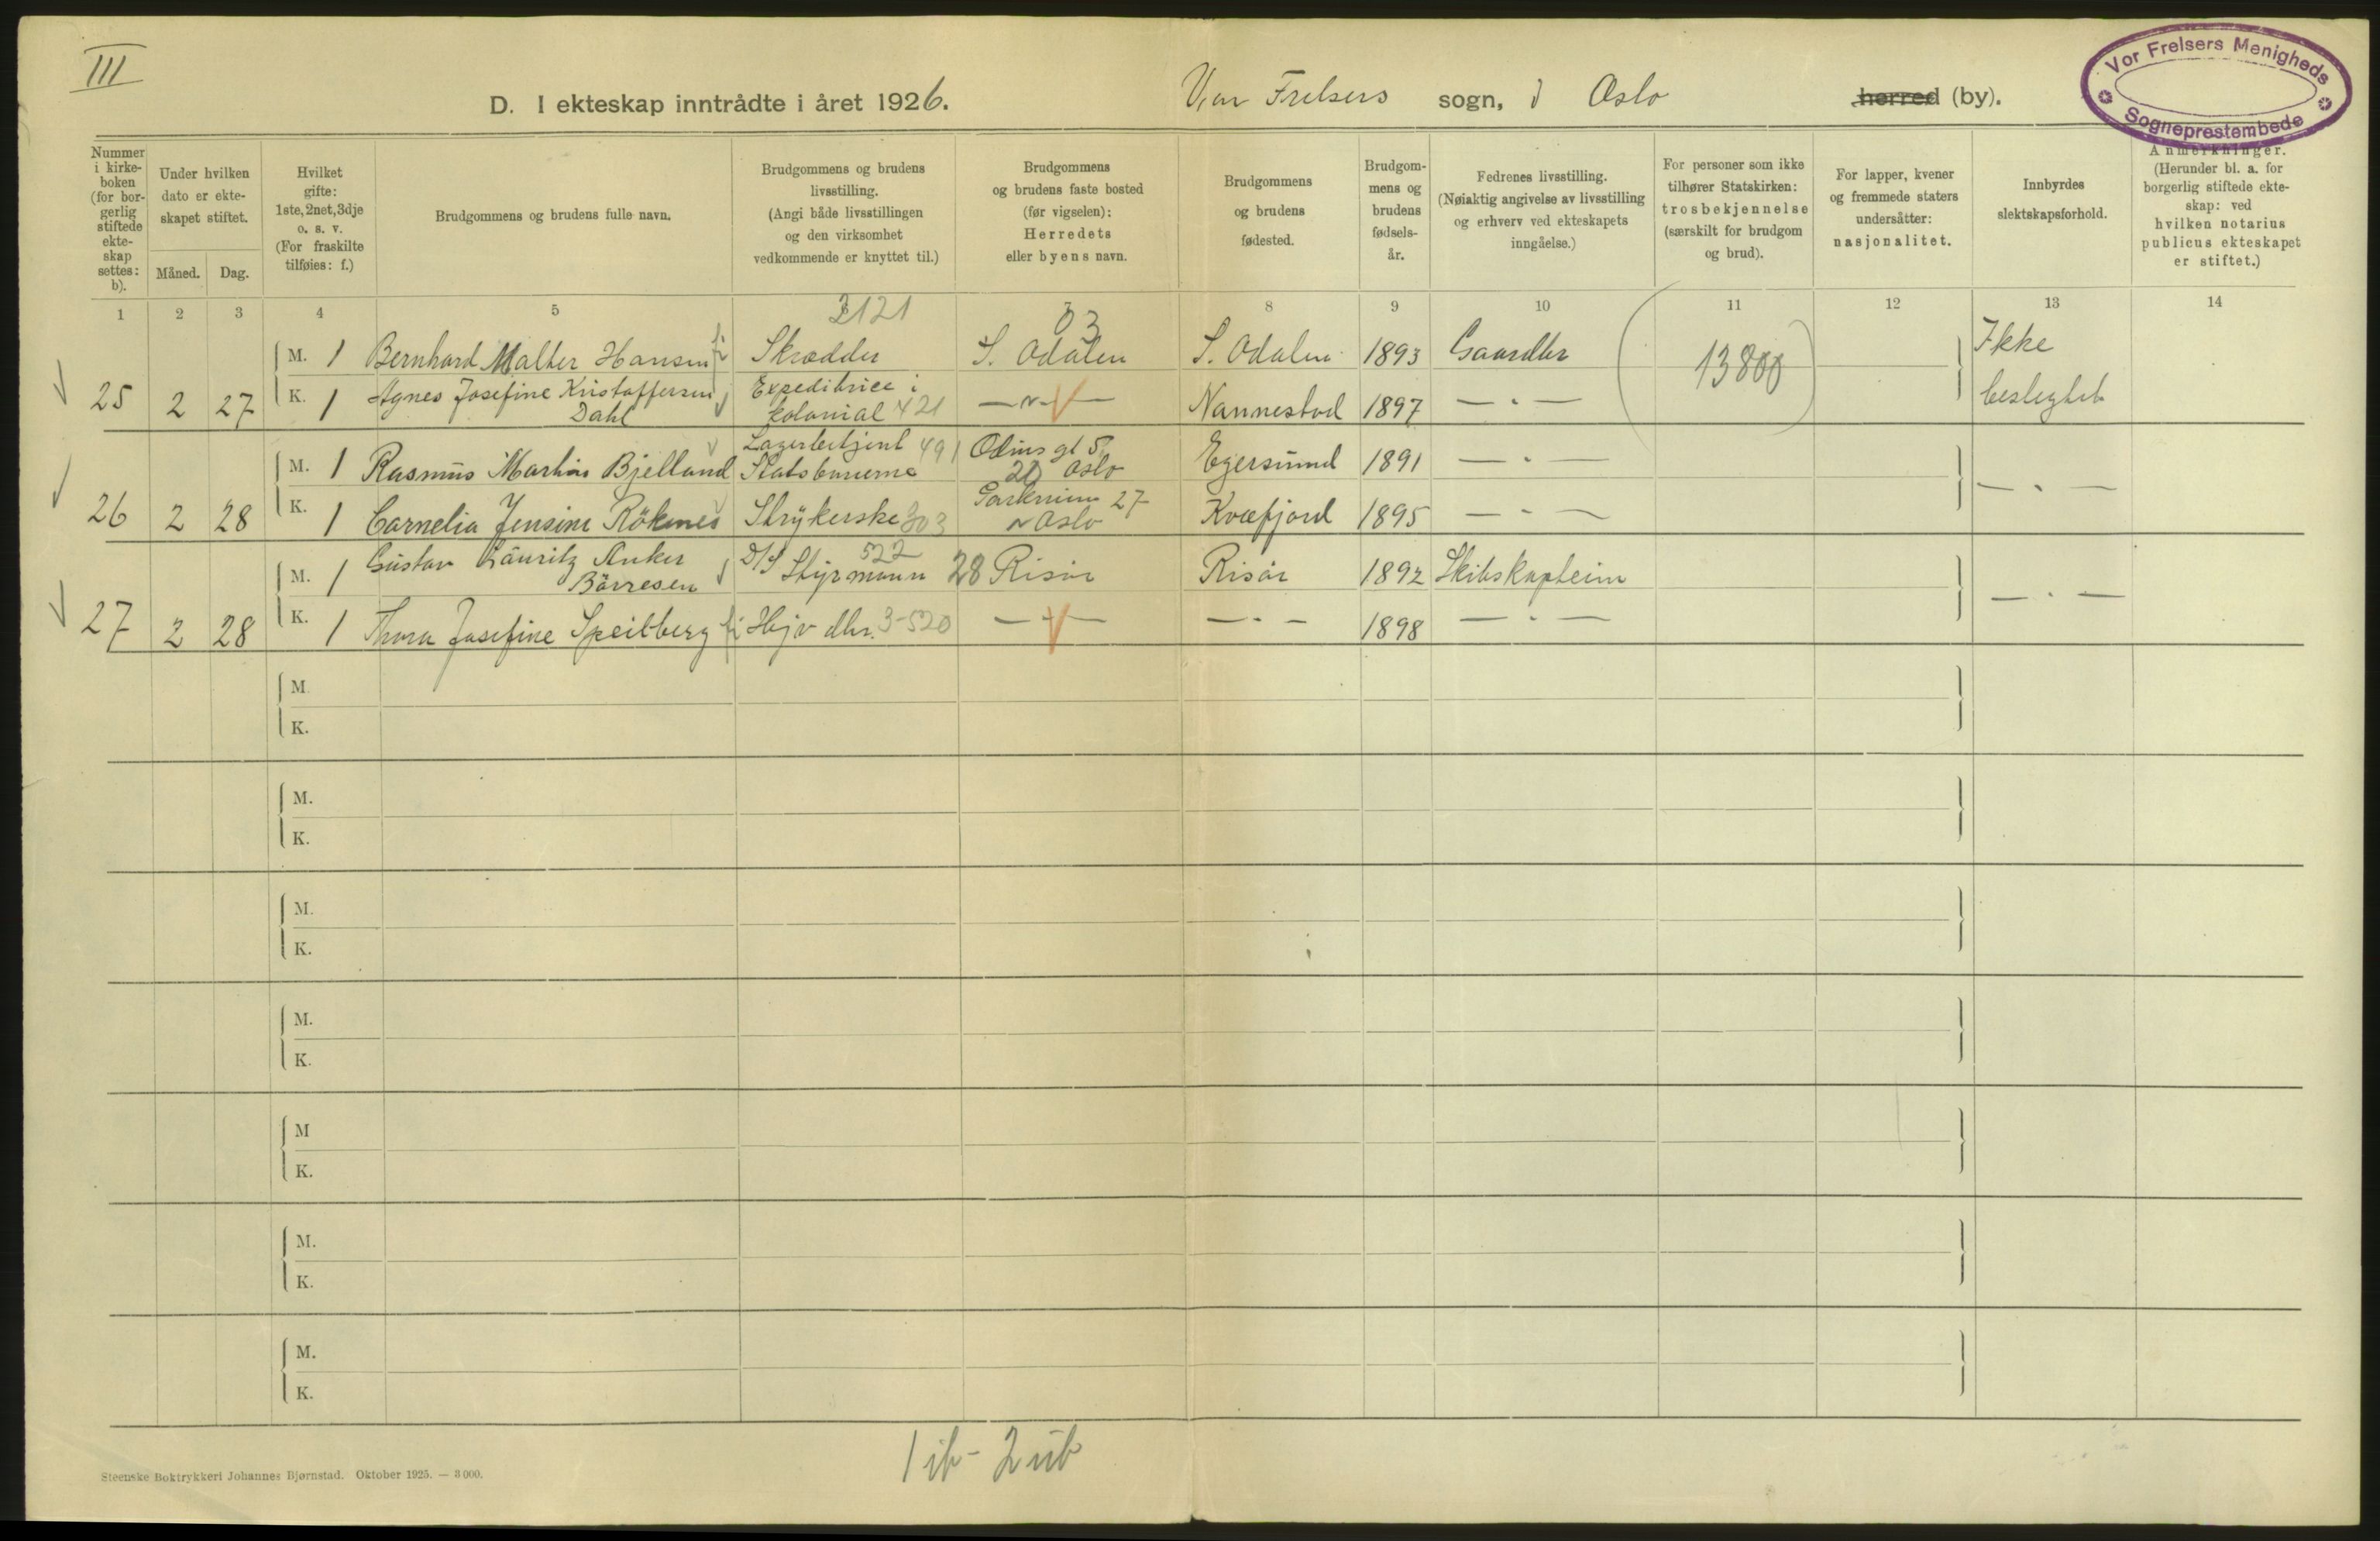 III
D. I ekteskap inntrådte i året 1926.
Vor Frelsers sogn, i Oslo herred (by).
Vor Frelsers Menigheds
Sogneprestembede
Nummer i kirke-boken (for bor-gerlig stiftede ekte-skap settes: b).
Under hvilken dato er ekte-skapet stiftet.
Måned. Dag.
Hvilket gifte: 1ste, 2net, 3dje o. s. v. (For fraskilte tilføies: f.)
Brudgommens og brudens fulle navn.
Brudgommens og brudens livsstilling. (Angi både livsstillingen og den virksomhet vedkommende er knyttet til.)
Brudgommens og brudens faste bosted (før vigselen): Herredets eller byens navn.
Brudgommens og brudens fødested.
Brudgom-mens og brudens fødsels-år.
Fedrenes livsstilling. (Nøiaktig angivelse av livsstilling og erhverv ved ekteskapets inngåelse.)
For personer som ikke tilhører Statskirken: trosbekjennelse (særskilt for brudgom og brud).
For lapper, kvener og fremmede staters undersåtter: nasjonalitet.
Innbyrdes slektskapsforhold.
Anmerkninger. (Herunder bl. a. for borgerlig stiftede ekte-skap: ved hvilken notarius publicus ekteskapet er stiftet.)
1 2 3 4 5 8 9 10 11 12 13 14
2121 03
M. 1 Bernhard Malter Hansen Skrædder S. Odalen S. Odalen 1893 Gaardbr 13800 Ikke
25 2 27 K. 1 Agnes Josefine Kristoffersen Dahl Expeditrice i kolonial 421 — " — Nannestad 1897 — " — beslegtet
M. 1 Rasmus Martin Bjelland Lagerbetjent 491 Statsbanerne Odins gt 5 20 Oslo Egersund 1891 — " —
26 2 28 K. 1 Cornelia Jensine Röknes Strykerske 303 27 Oslo Kvæfjord 1895 — " — — " —
M. 1 Gustav Lauritz Anker Börresen D/S Styrmann 522 28 Risør Risør 1892 Skibskaptein
27 2 28 K. 1 Thora Josefine Speilberg Hjv dtr. 3-520 — " — — " — 1898 — " — — " —
M.
K.
M.
K.
M.
K.
M.
K.
M
K.
M.
K.
M.
K.
1 ib - 2 ub
Steenske Boktrykkeri Johannes Bjørnstad. Oktober 1925. — 3 000.